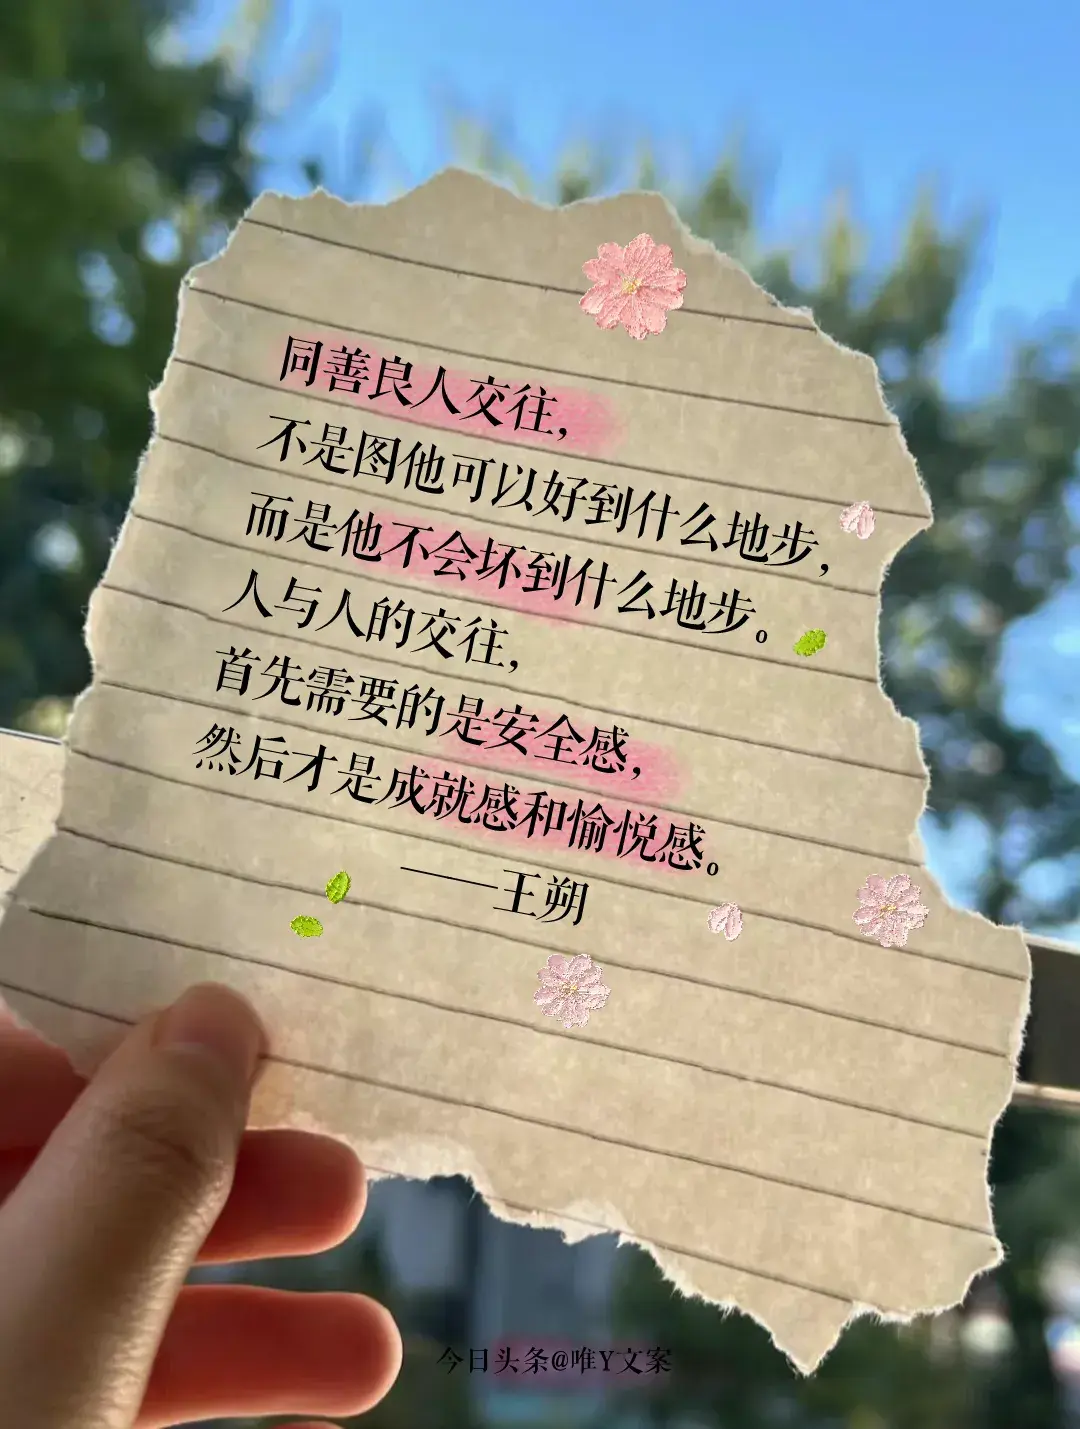 同善良人交往，
不是图他可以好到什么地步，
而是他不会坏到什么地步。
人与人的交往，
首先需要的是安全感，
然后才是成就感和愉悦感。
——王朔
今日头条@唯Y文案